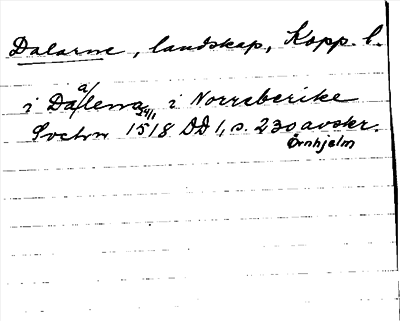 Dalarne, landskap, Kopp. l.
i Dalena i Norreberike
a/
24/1
1518 DD 1, s. 230 avskr.
Örnhjelm